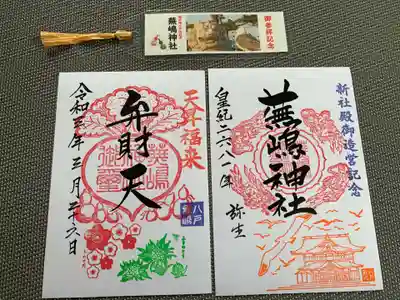 御参拝記念
蕪嶋神社
弁財天
令和三年三月二十六日
八戸
蕪嶋
新社殿御造営記念
蕪嶋神社
皇紀二六八一年 弥生